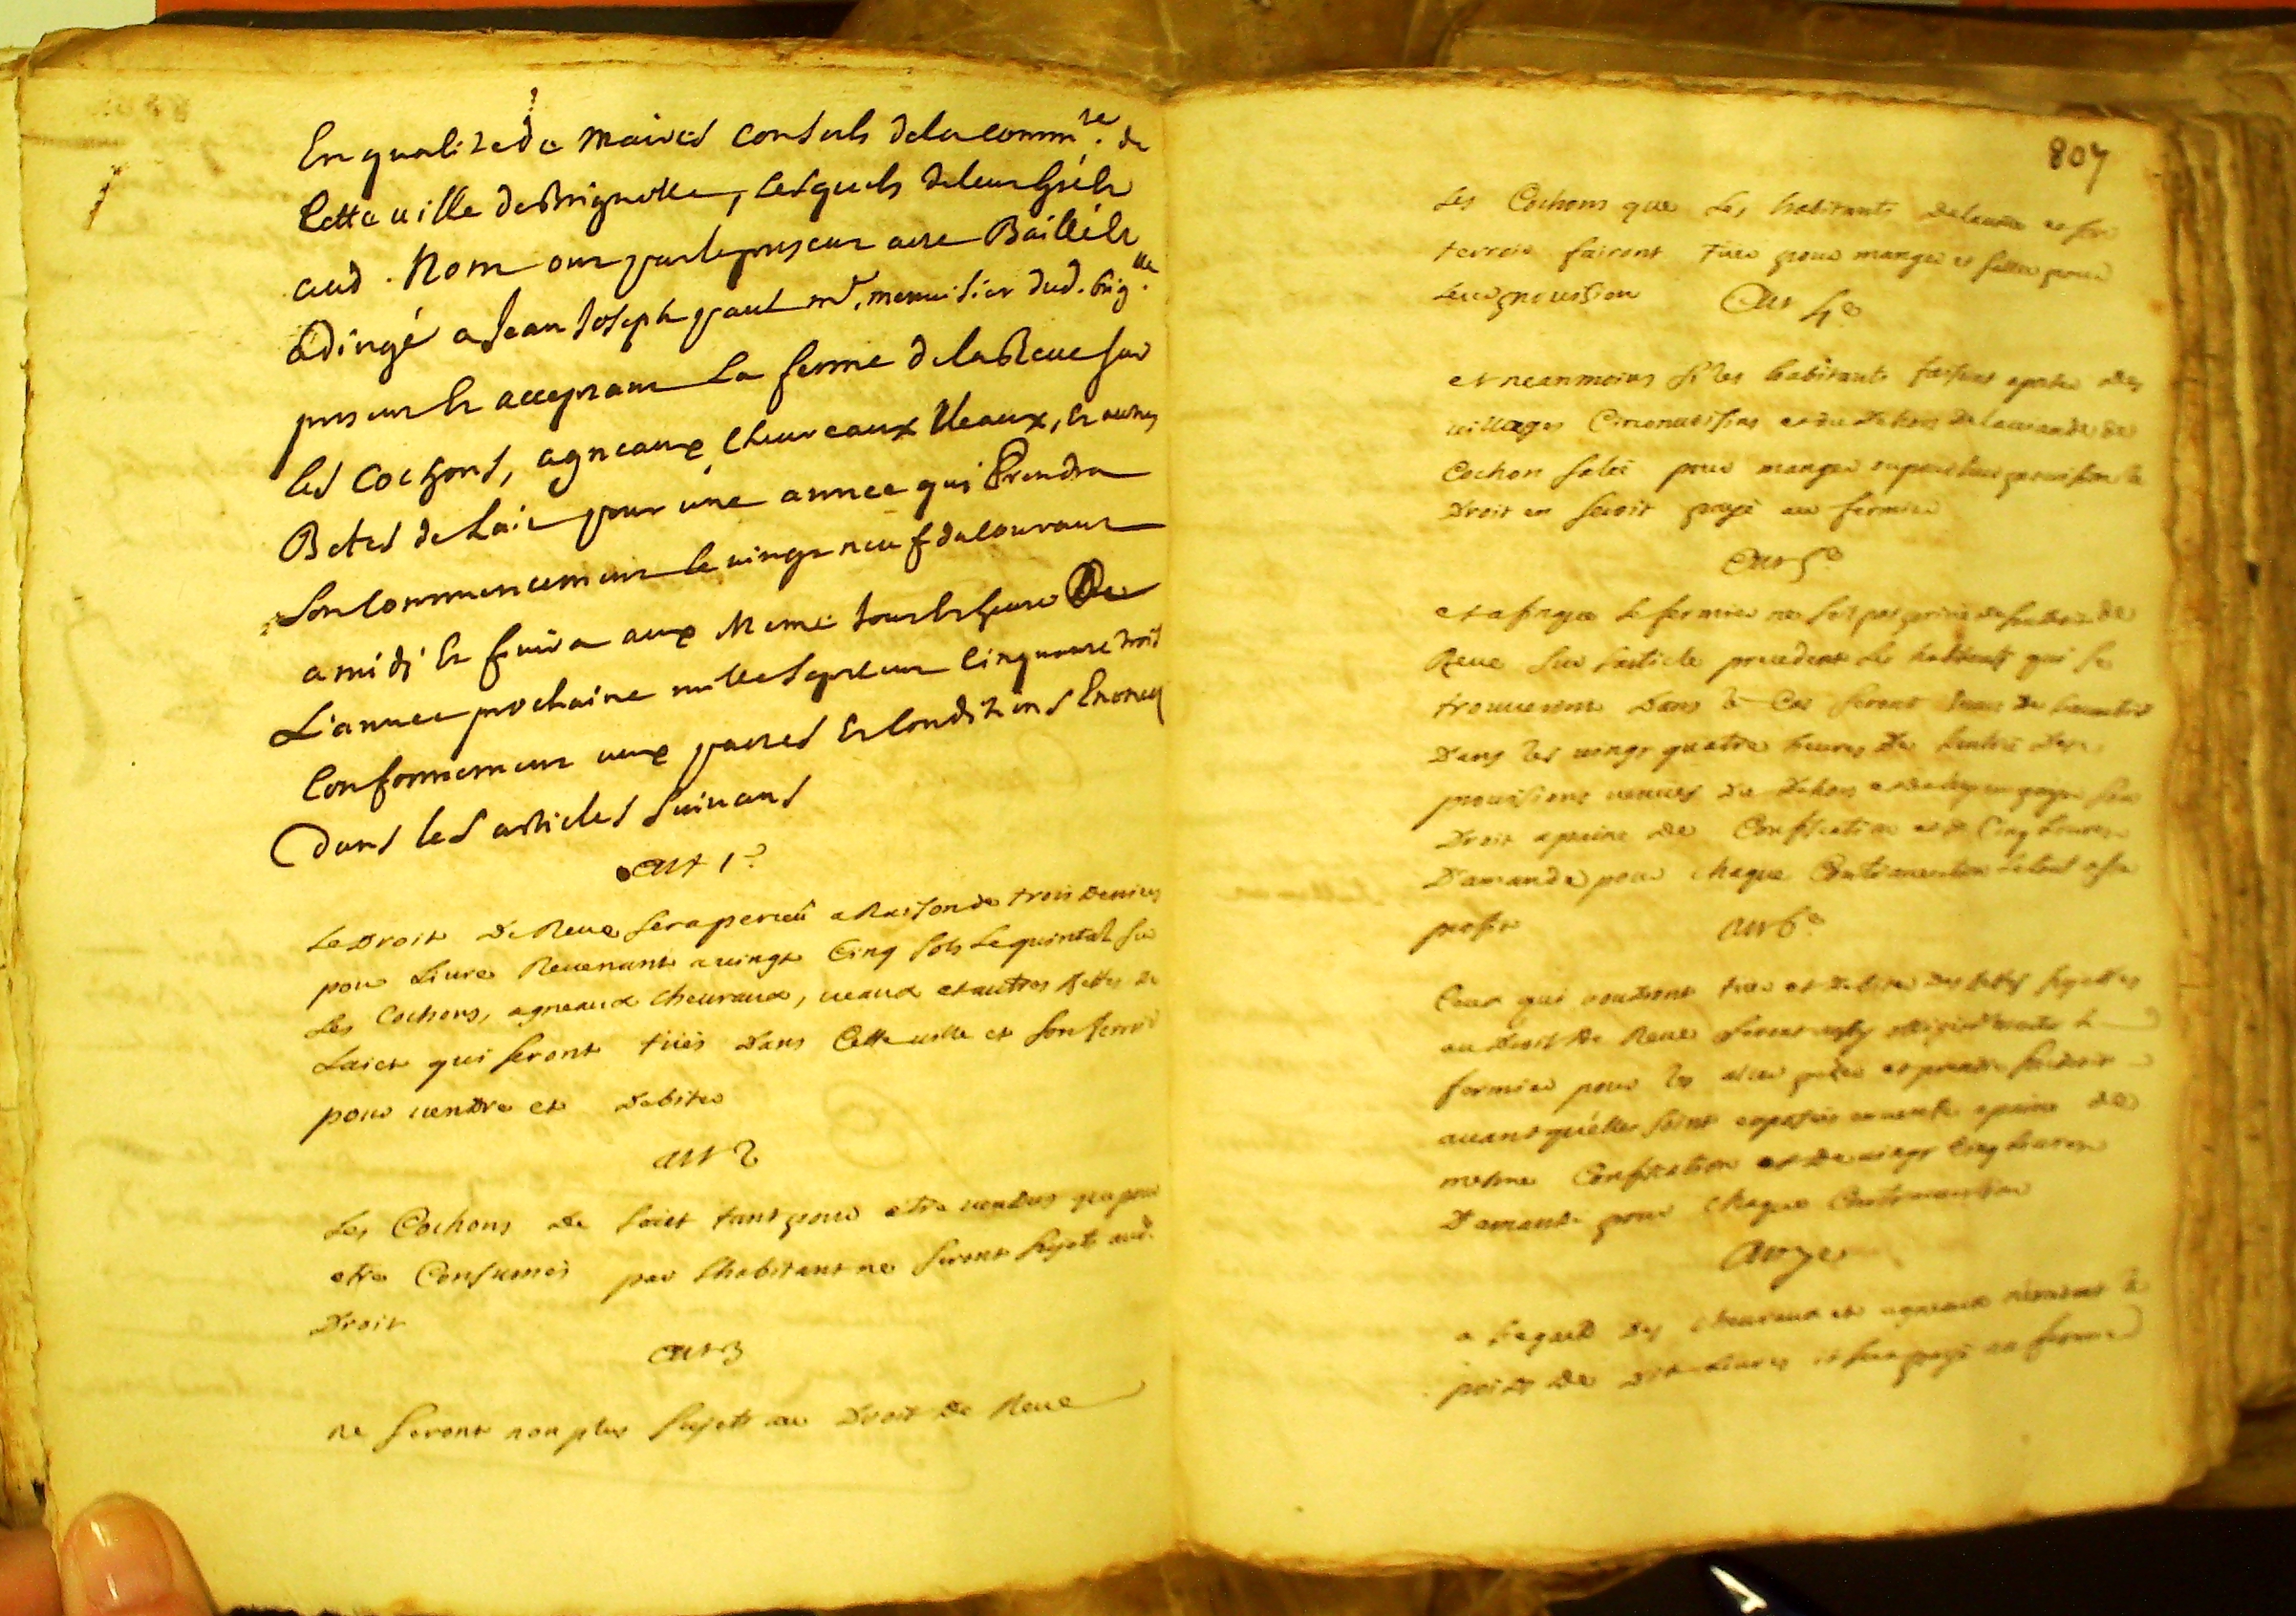 En qualité de Maires Consuls de la comm.té de
Cette ville de Brignolle, lesquels de leur gré &
aud. Nom ont par le present acte Baillé &
adingé a Jean Joseph paul m.e menuisier dud. brig.lle
present & acceptant La ferme de la Reve sur
les Cochons, agneaux, Cheuvreaux Veaux, & autres
Betes de Lait pour une annee qui Prendra
son Commencement le vingt neuf du Courant
a midi & finira aux Meme Jour & heure De
L'annee prochaine mille sept cent Cinquante trois
Conformement aux pactes & Conditions Enoncés
Dans les articles suivans
art 1.e
Le Droit De Reve sera perceu a Raison de trois Deniers
pour Livre Revenant a vingt Cinq sols Le quintal sur
Les Cochons, agneaux cheuraux, veaux et autres Bettes de
Laict qui seront tüés Dans Cette ville et son terroir
pour vendre et Debiter
art 2
Les Cochons de Laict tant pour etre vendus que pour
etre Consumés par l'habitant ne seront sujets aud.
Droit
art 3
ne seront non plus sujets au Droit De Reve
807
Les Cochons que Les habitants de la ville et son
terroir fairont Tuer pour manger et saller pour
leur provision
Art 4.e
et neanmoins si les habitants faisent aporter des
villages Circonvoisins et du Dehors de la viande de
Cochon salée pour manger ou pour leur provision le
Droit en seroit payé au fermier
Art 5.e
et afin que Le fermier ne soit pas privé de son Droit de
Reve sur l'article precedent Les habitants qui se
trouveront Dans le Cas seront tenus De
Dans les vingt quatre heures De l'entrée des
provisions venües Du Dehors et en payer son
Droit a peine De Confiscation et de Cinq Livres
D'amande pour chaque Contravention
profit
Art 6.e
Ceux qui voudront tuer et Debiter Des bettes sujettes
au Droit De Reve seront obligés d'avertir Le
fermier pour les aller peser et prendre son droit
avant qu'elles soint exposées en vente a peine de
mesme Confiscation et De vingt Cinq Livres
D'amande pour chaque Contravention
Art 7.e
a L'egard Des cheuraux et agneaux
poids De Dix Livres il sera payé au fermier